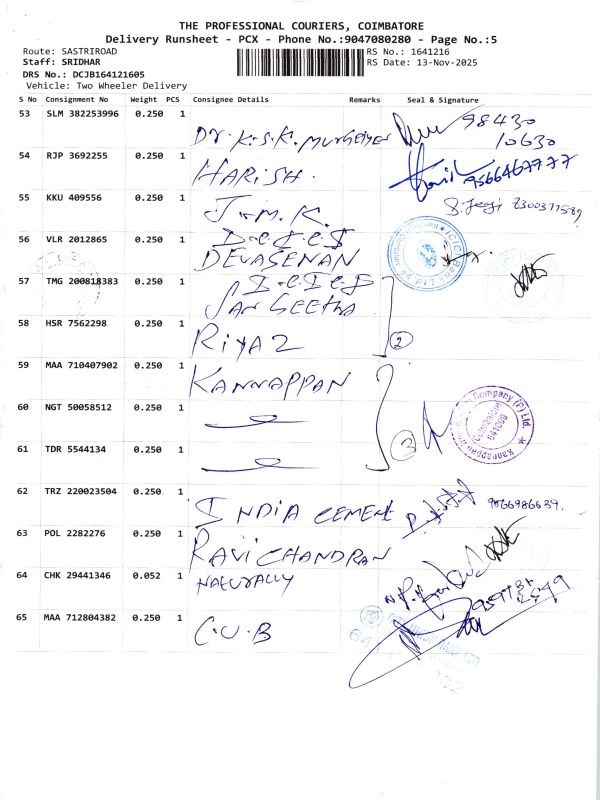 THE PROFESSIONAL COURIERS, COIMBATORE
Delivery Runsheet - PCX - Phone No.:9047080280 - Page No.:5
Route: SASTRIROAD
RS No.: 1641216
Staff: SRIDHAR
RS Date: 13-Nov-2025
DRS No.: DCJB164121605
Vehicle: Two Wheeler Delivery
S No Consignment No Weight PCS Consignee Details Remarks Seal & Signature
53 SLM 382253996 0.250 1 98430
Dr. K.S.K. 10630
54 RJP 3692255 0.250 1 HARISH. 9566467777
55 KKU 409556 0.250 1 J.M.K.
56 VLR 2012865 0.250 1
DEVASENAN
57 TMG 200818383 0.250 1
SANGEETHA
58 HSR 7562298 0.250 1 RIYAZ 2
59 MAA 710407902 0.250 1 KANNAPPAN
60 NGT 50058512 0.250 1 3
61 TDR 5544134 0.250 1
62 TRZ 220023504 0.250 1 INDIA CEMENT 9566986639.
63 POL 2282276 0.250 1 RAVICHANDRAN
64 CHK 29441346 0.052 1 NATURALLY
65 MAA 712804382 0.250 1 C.U.B